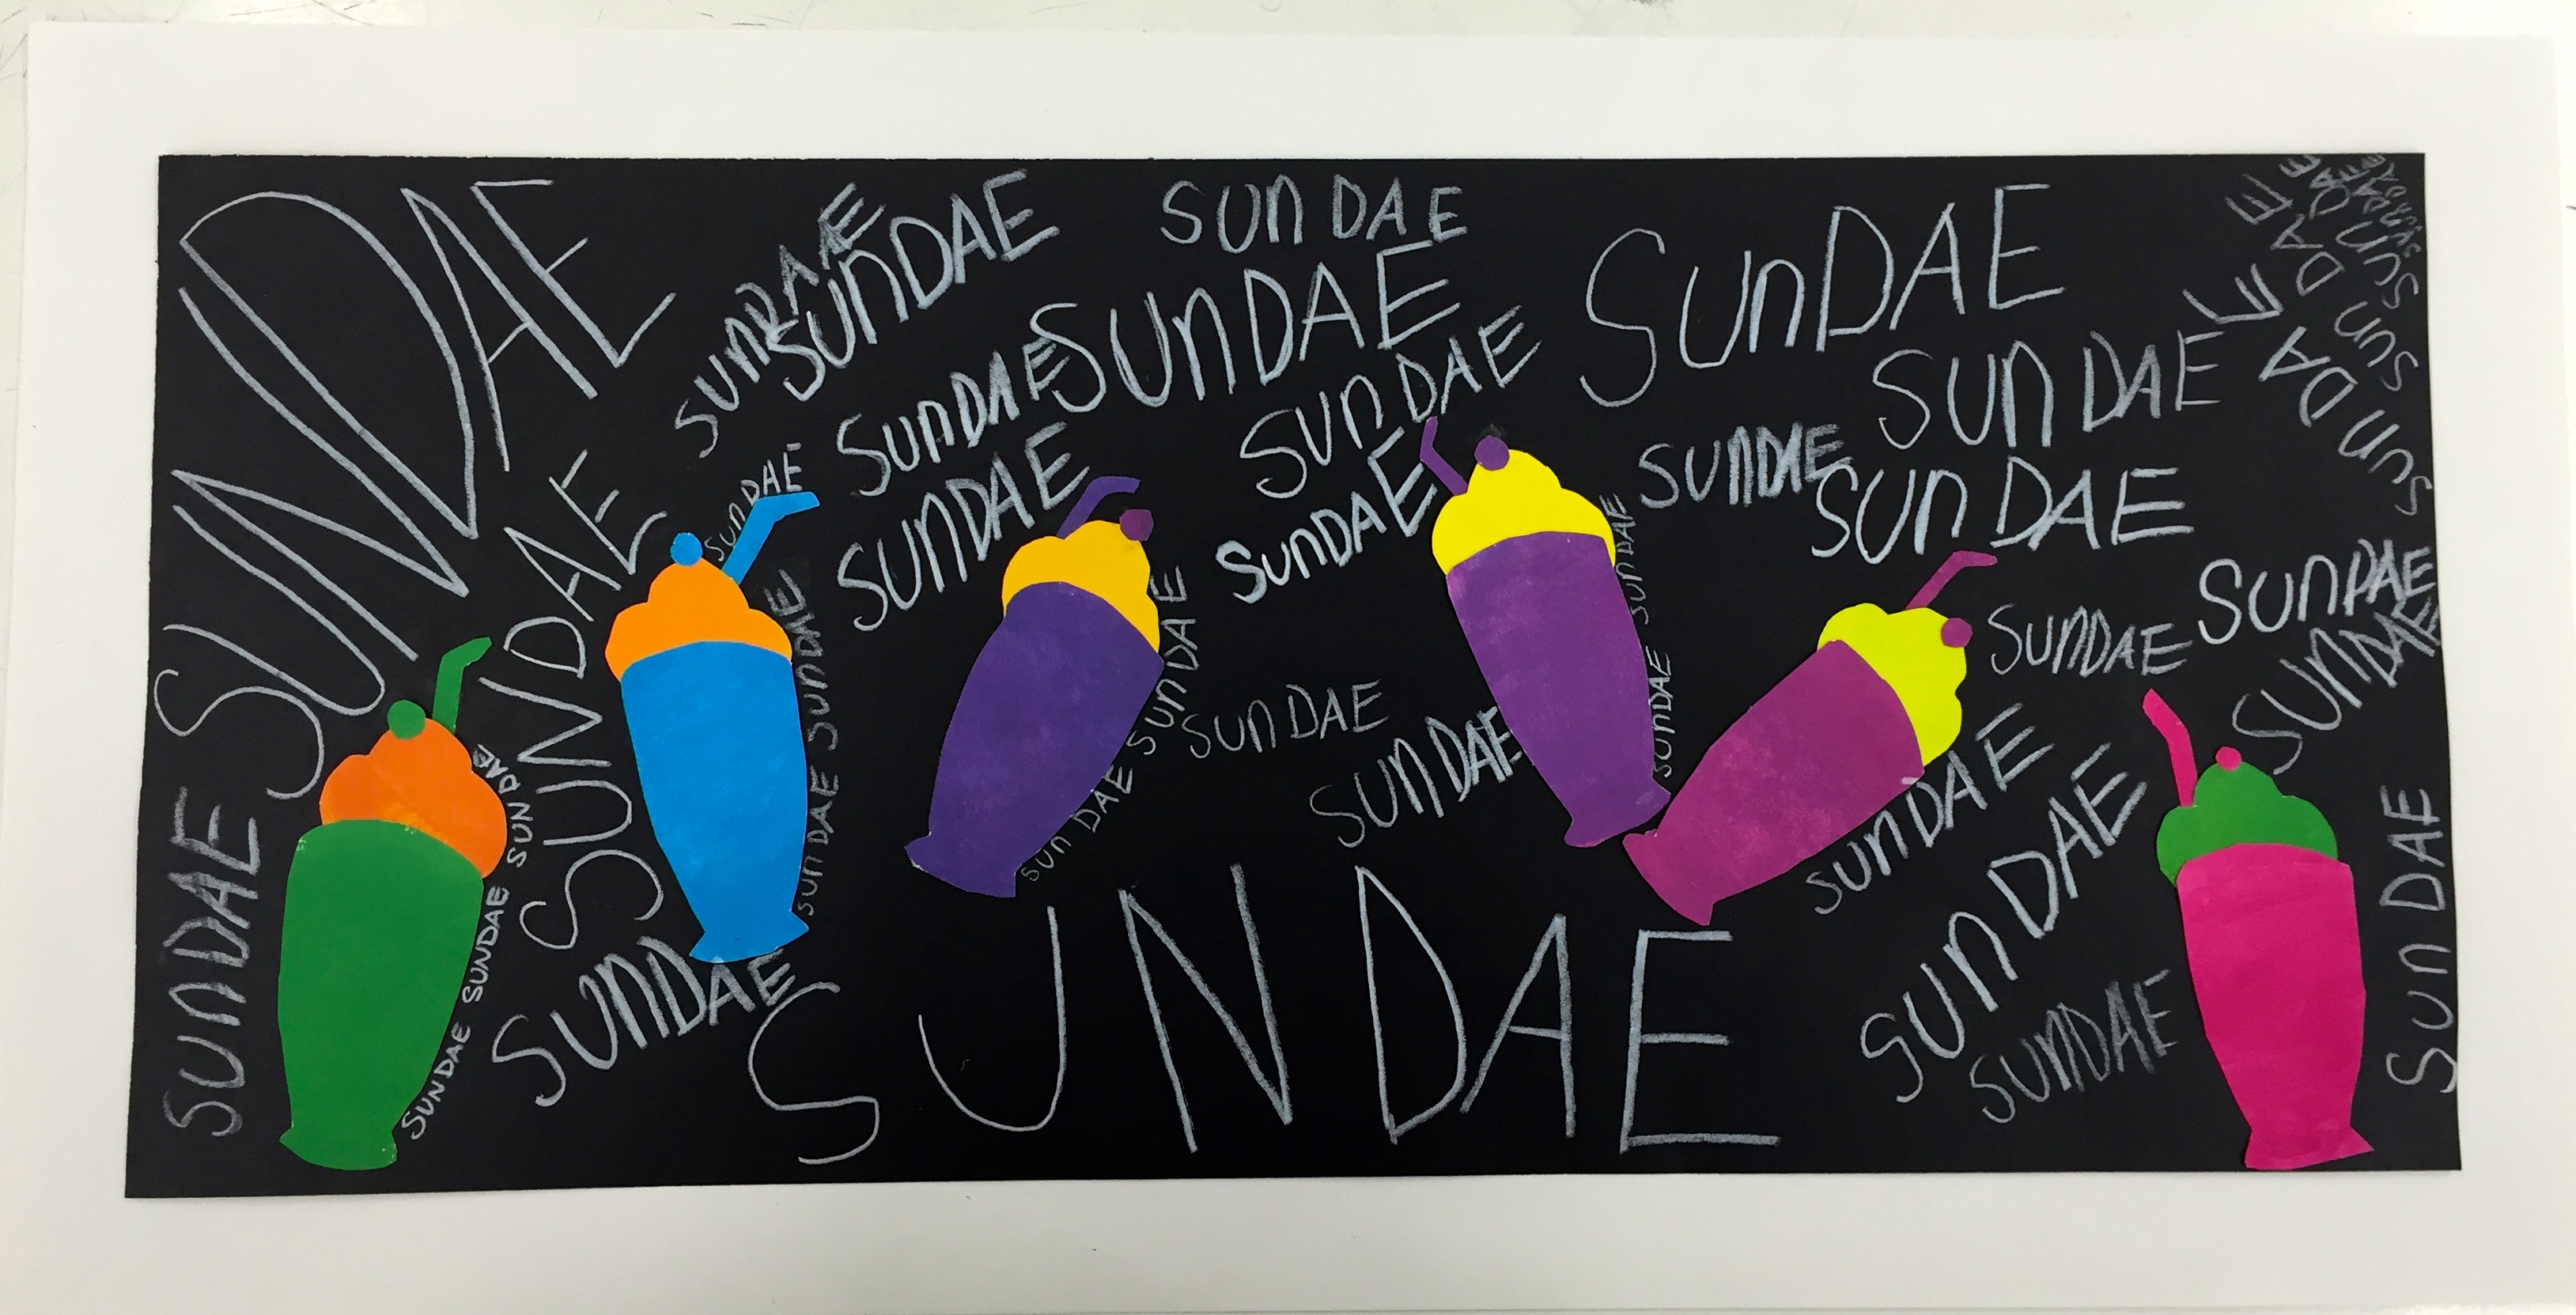 SUNDAE
SUNDAE
SUNDAE
SUN DAE
SUNDAE
SUNDAE
SUNDAE
SUN DAE
SUN DAE
SUN DAE
SUNDAE
SUNDAE
SUNDAE
SUN DAE
SUNDAE
SUNDAE
SUNDAE
SUN DAE
SUNDAE
SUNDAE
SUNDAE
SUNDAE SUNDAE
SUNDAE SUNDAE
SUNDAE SUNDAE
SUNDAE
SUNDAE
SUN DAE
SUNDAE
SUNDAE SUNDAE SUN DAE
SUNDAE
SUNDAE
SUNDAE
SUN DAE
SUNDAE
SUNDAE
SUN DAE